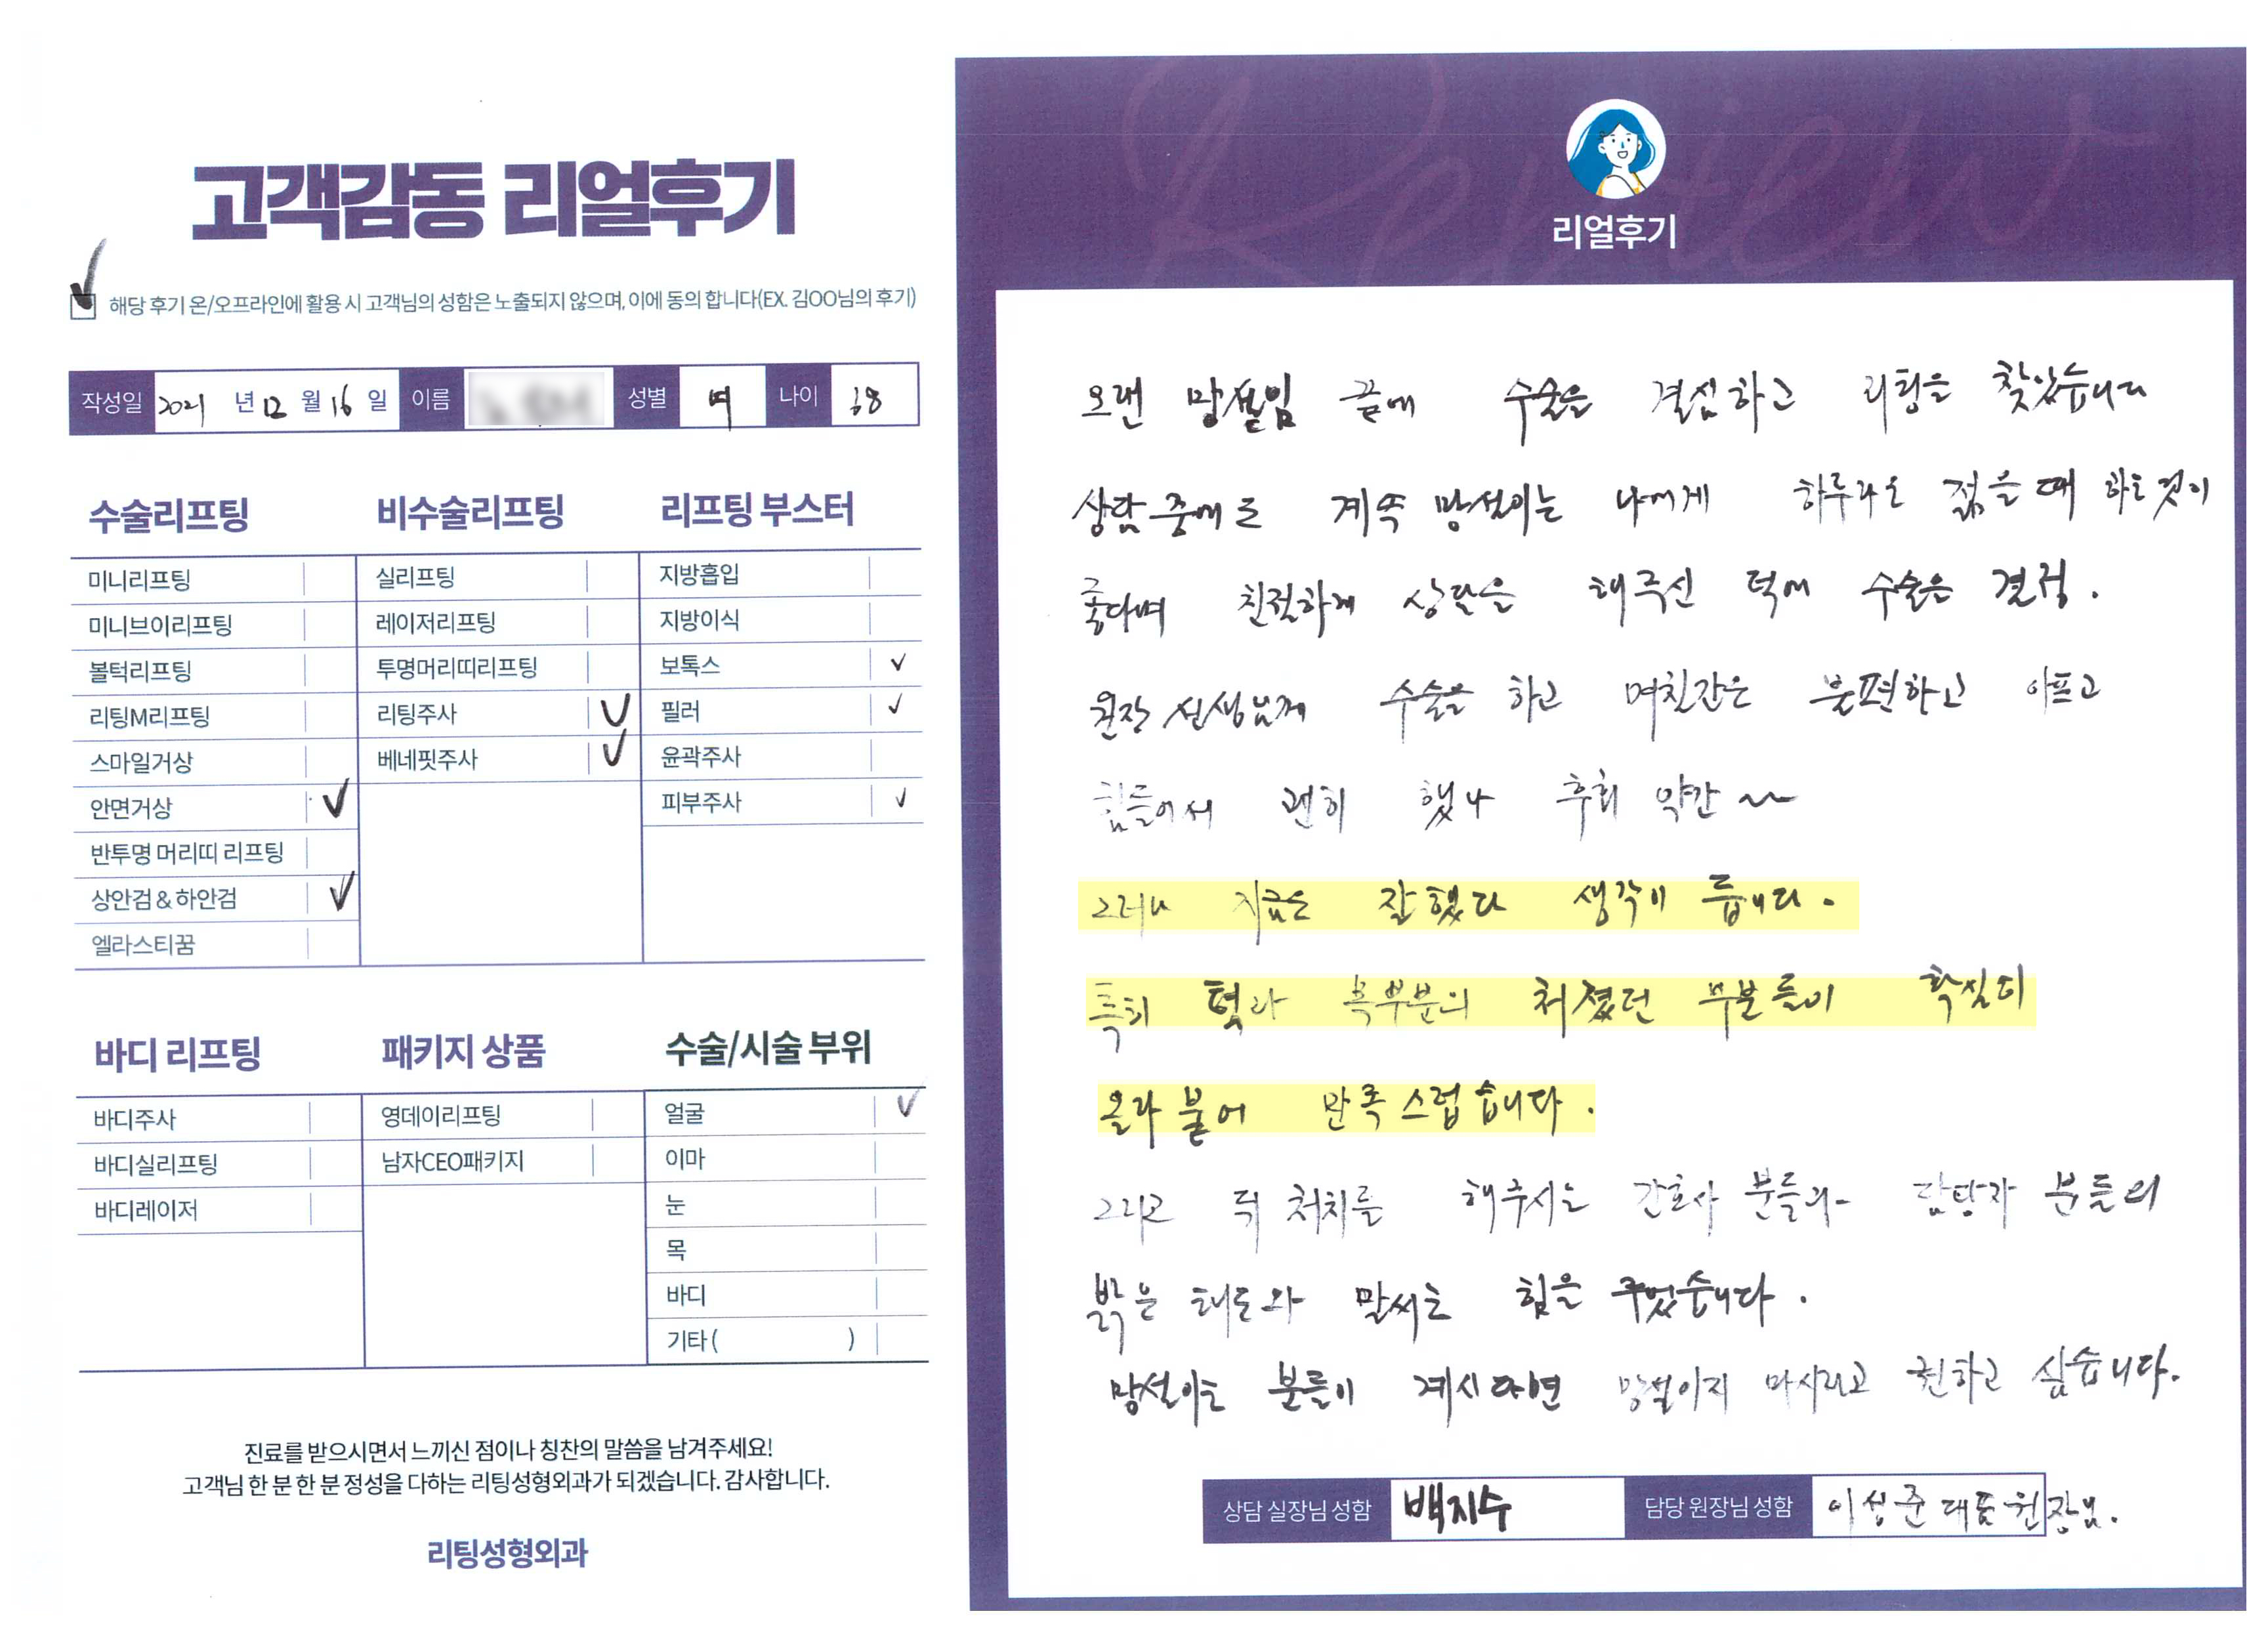 고객감동 리얼후기
해당 후기 온/오프라인에 활용 시 고객님의 성함은 노출되지 않으며, 이에 동의 합니다(EX. 김OO님의 후기)
작성일 2021 년 12 월 16 일 이름 성별 여 나이 68
수술리프팅
미니리프팅
미니브이리프팅
볼턱리프팅
리팅M리프팅
스마일거상
안면거상
반투명 머리띠 리프팅
상안검 & 하안검
엘라스티꿈
비수술리프팅
실리프팅
레이저리프팅
투명머리띠리프팅
리팅주사
베네핏주사
리프팅 부스터
지방흡입
지방이식
보톡스
필러
윤곽주사
피부주사
바디 리프팅
바디주사
바디실리프팅
바디레이저
패키지 상품
영데이리프팅
남자CEO패키지
수술/시술 부위
얼굴
이마
눈
목
바디
기타 ( )
진료를 받으시면서 느끼신 점이나 칭찬의 말씀을 남겨주세요!
고객님 한 분 한 분 정성을 다하는 리팅성형외과가 되겠습니다. 감사합니다.
리팅성형외과
Review
리얼후기
오랜 망설임 끝에 수술을 결심하고 리팅을 찾았습니다
상담중에도 계속 망설이는 나에게 하루라도 젊을때 하는것이
좋다며 친절하게 상담을 해주신 덕에 수술을 결정.
원장 선생님께 수술을 하고 며칠간은 불편하고 아프고
힘들어서 괜히 했나 후회 약간~
그러나 지금은 잘했다 생각이 듭니다.
특히 턱과 목부분의 처졌던 부분들이 확실히
올라 붙어 만족스럽습니다.
그리고 뒤 처치를 해주시는 간호사 분들과 담당자 분들의
밝은 태도와 말씨는 힘을 주었습니다.
망설이는 분들이 계시다면 망설이지 마시라고 권하고 싶습니다.
상담 실장님 성함 백지수 담당 원장님 성함 이성준 대표원장님.